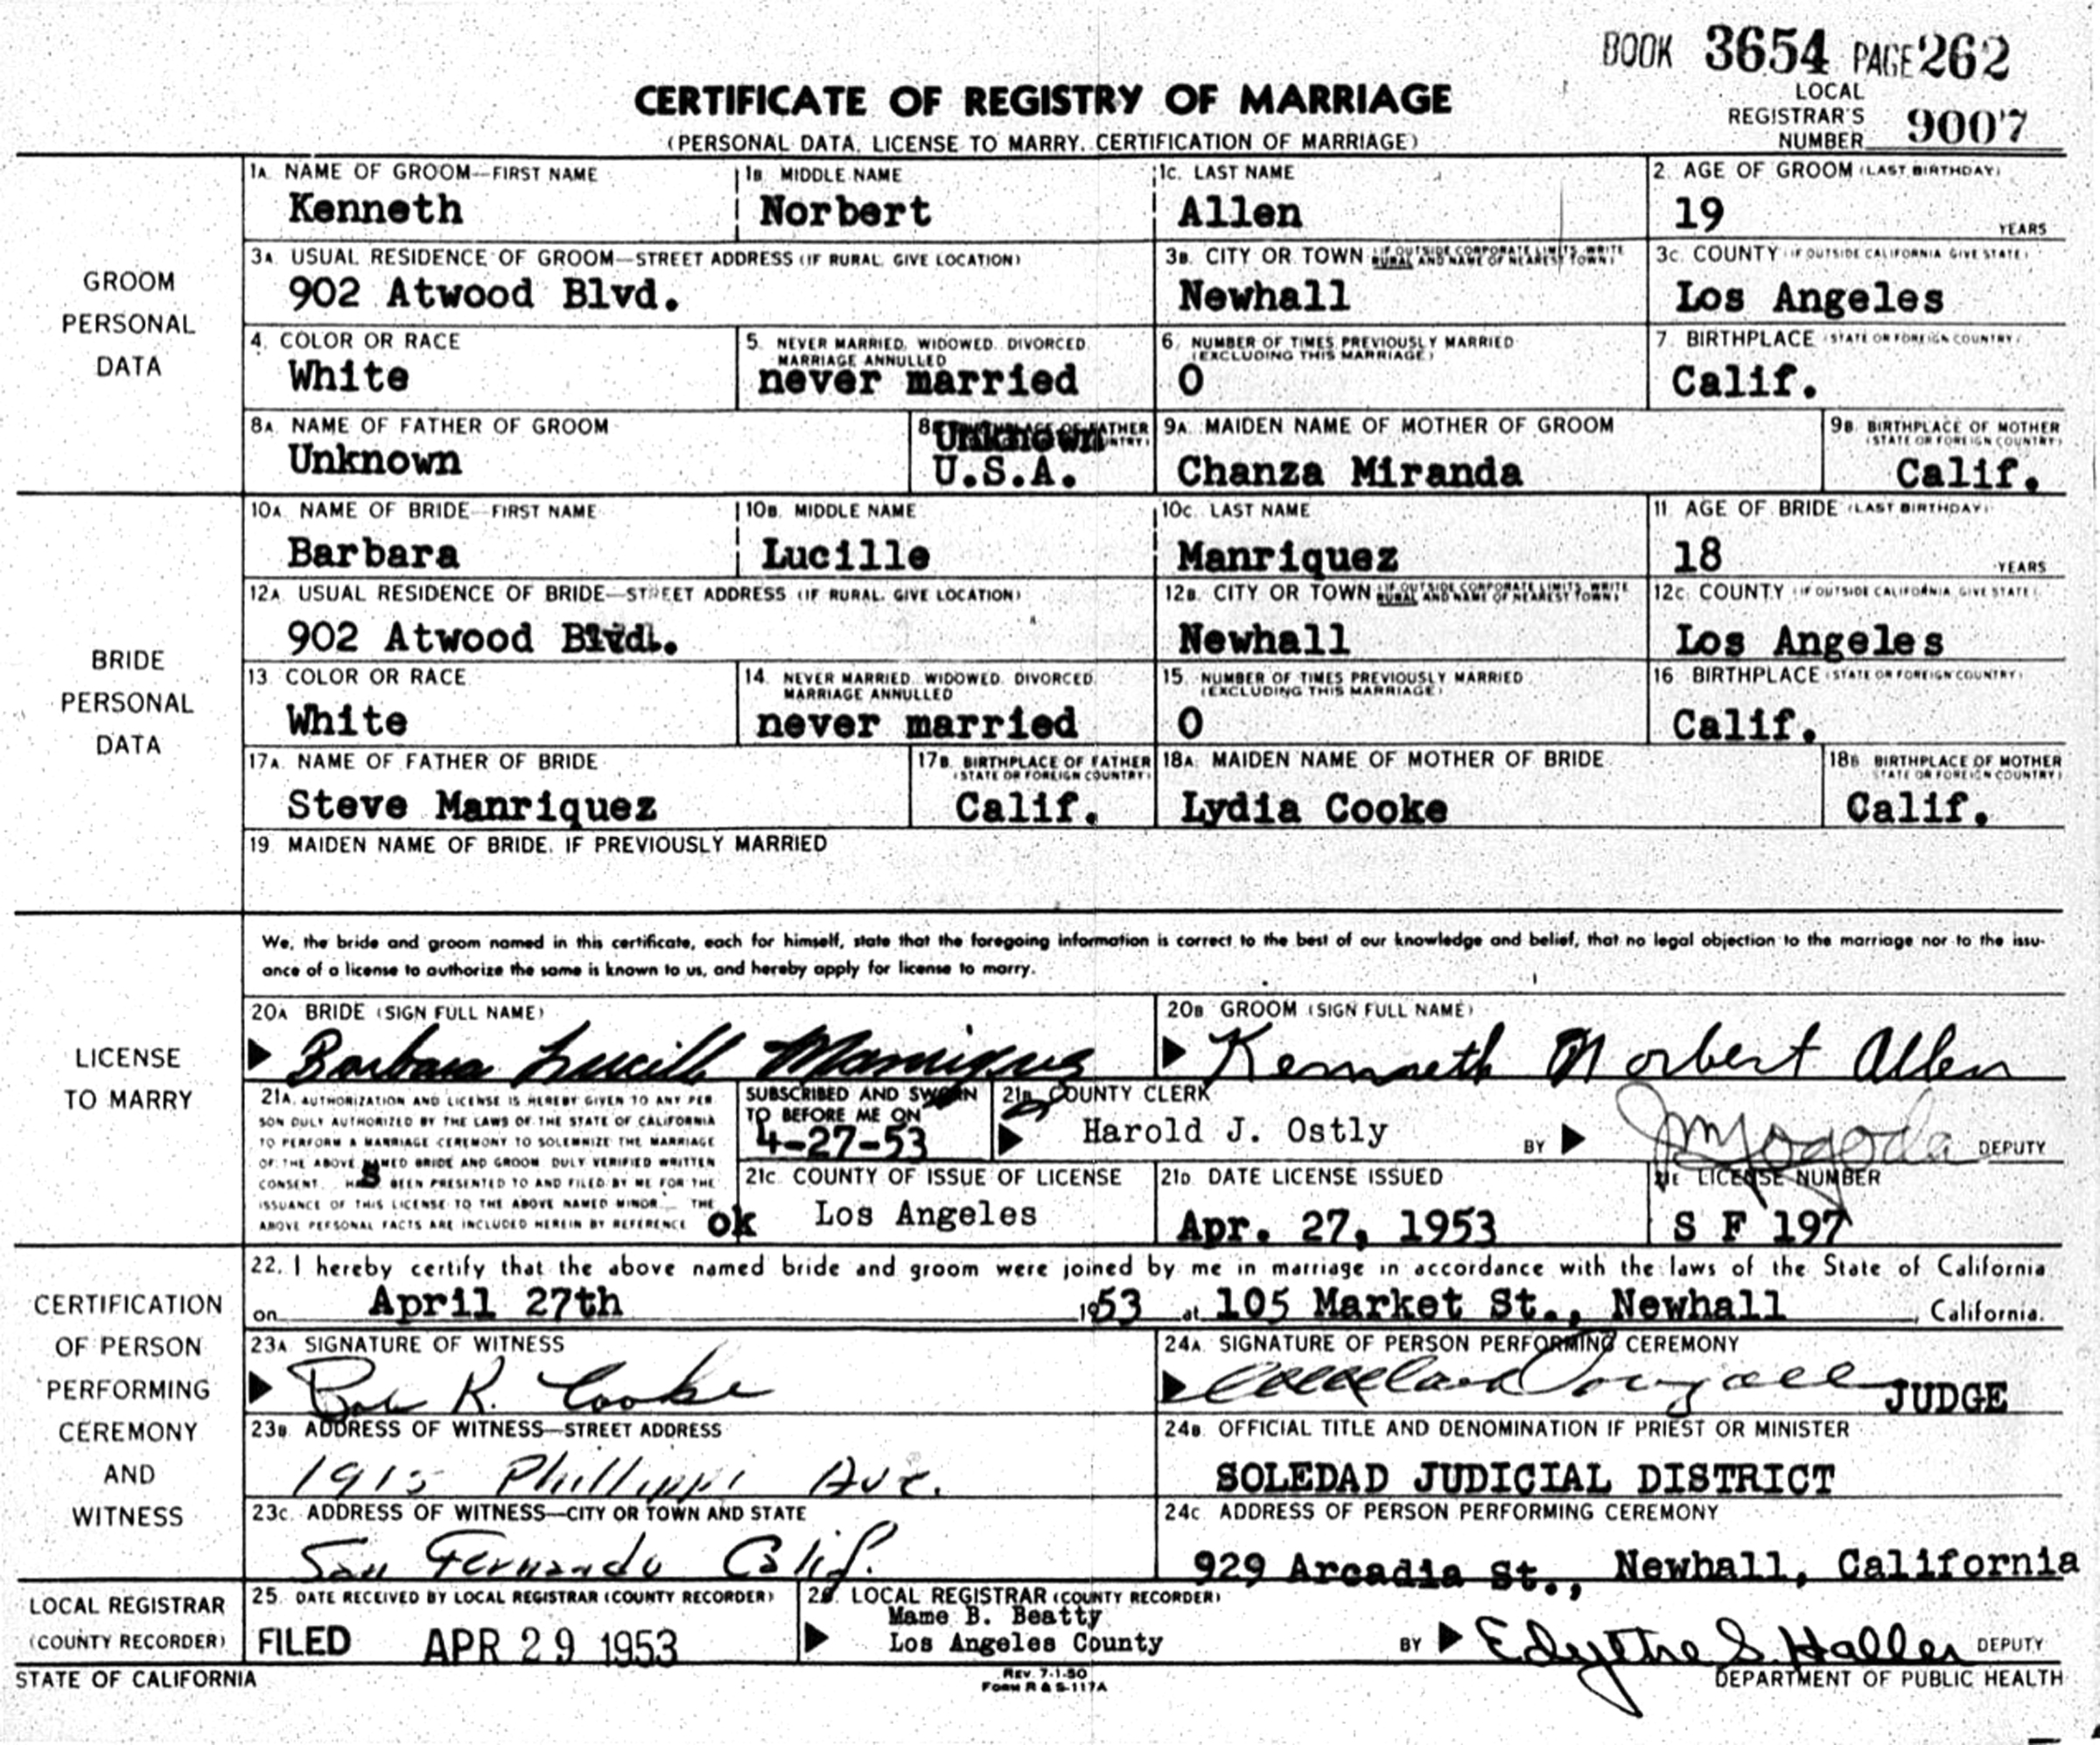 BOOK 3654 PAGE 262
CERTIFICATE OF REGISTRY OF MARRIAGE
(PERSONAL DATA, LICENSE TO MARRY, CERTIFICATION OF MARRIAGE)
LOCAL
REGISTRAR'S
NUMBER 9007
GROOM
PERSONAL
DATA
1A. NAME OF GROOM—FIRST NAME
Kenneth
1B. MIDDLE NAME
Norbert
1C. LAST NAME
Allen
2. AGE OF GROOM (LAST BIRTHDAY)
19 YEARS
3A. USUAL RESIDENCE OF GROOM—STREET ADDRESS (IF RURAL, GIVE LOCATION)
902 Atwood Blvd.
3B. CITY OR TOWN (IF OUTSIDE CORPORATE LIMITS, WRITE
RURAL AND NAME OF NEAREST TOWN)
Newhall
3C. COUNTY (IF OUTSIDE CALIFORNIA GIVE STATE)
Los Angeles
4. COLOR OR RACE
White
5. NEVER MARRIED, WIDOWED, DIVORCED,
MARRIAGE ANNULLED
never married
6. NUMBER OF TIMES PREVIOUSLY MARRIED
(EXCLUDING THIS MARRIAGE)
0
7. BIRTHPLACE (STATE OR FOREIGN COUNTRY)
Calif.
8A. NAME OF FATHER OF GROOM
Unknown
Unknown
U.S.A.
9A. MAIDEN NAME OF MOTHER OF GROOM
Chanza Miranda
9B. BIRTHPLACE OF MOTHER
(STATE OR FOREIGN COUNTRY)
Calif.
BRIDE
PERSONAL
DATA
10A. NAME OF BRIDE—FIRST NAME
Barbara
10B. MIDDLE NAME
Lucille
10C. LAST NAME
Manriquez
11. AGE OF BRIDE (LAST BIRTHDAY)
18 YEARS
12A. USUAL RESIDENCE OF BRIDE—STREET ADDRESS (IF RURAL, GIVE LOCATION)
902 Atwood Blvd.
12B. CITY OR TOWN (IF OUTSIDE CORPORATE LIMITS, WRITE
RURAL AND NAME OF NEAREST TOWN)
Newhall
12C. COUNTY (IF OUTSIDE CALIFORNIA, GIVE STATE)
Los Angeles
13. COLOR OR RACE
White
14. NEVER MARRIED, WIDOWED, DIVORCED,
MARRIAGE ANNULLED
never married
15. NUMBER OF TIMES PREVIOUSLY MARRIED
(EXCLUDING THIS MARRIAGE)
0
16. BIRTHPLACE (STATE OR FOREIGN COUNTRY)
Calif.
17A. NAME OF FATHER OF BRIDE
Steve Manriquez
17B. BIRTHPLACE OF FATHER
(STATE OR FOREIGN COUNTRY)
Calif.
18A. MAIDEN NAME OF MOTHER OF BRIDE
Lydia Cooke
18B. BIRTHPLACE OF MOTHER
(STATE OR FOREIGN COUNTRY)
Calif.
19. MAIDEN NAME OF BRIDE, IF PREVIOUSLY MARRIED
LICENSE
TO MARRY
We, the bride and groom named in this certificate, each for himself, state that the foregoing information is correct to the best of our knowledge and belief, that no legal objection to the marriage nor to the issu-
ance of a license to authorize the same is known to us, and hereby apply for license to marry.
20A. BRIDE (SIGN FULL NAME)
Barbara Lucille Manriquez
20B. GROOM (SIGN FULL NAME)
Kenneth Norbert Allen
21A. AUTHORIZATION AND LICENSE IS HEREBY GIVEN TO ANY PER-
SON DULY AUTHORIZED BY THE LAWS OF THE STATE OF CALIFORNIA
TO PERFORM A MARRIAGE CEREMONY TO SOLEMNIZE THE MARRIAGE
OF THE ABOVE NAMED BRIDE AND GROOM. DULY VERIFIED WRITTEN
CONSENT HAS BEEN PRESENTED TO AND FILED BY ME FOR THE
ISSUANCE OF THIS LICENSE TO THE ABOVE NAMED MINOR. THE
ABOVE PERSONAL FACTS ARE INCLUDED HEREIN BY REFERENCE ok
SUBSCRIBED AND SWORN
TO BEFORE ME ON
4-27-53
21B. COUNTY CLERK
Harold J. Ostly
BY DEPUTY
21C. COUNTY OF ISSUE OF LICENSE
Los Angeles
21D. DATE LICENSE ISSUED
Apr. 27, 1953
21E. LICENSE NUMBER
S F 197
CERTIFICATION
OF PERSON
PERFORMING
CEREMONY
AND
WITNESS
22. I hereby certify that the above named bride and groom were joined by me in marriage in accordance with the laws of the State of California
on April 27th 1953 at 105 Market St., Newhall, California.
23A. SIGNATURE OF WITNESS
R. Cooke
24A. SIGNATURE OF PERSON PERFORMING CEREMONY
JUDGE
23B. ADDRESS OF WITNESS—STREET ADDRESS
1915 Phillippi Ave.
24B. OFFICIAL TITLE AND DENOMINATION IF PRIEST OR MINISTER
SOLEDAD JUDICIAL DISTRICT
23C. ADDRESS OF WITNESS—CITY OR TOWN AND STATE
San Fernando Calif.
24C. ADDRESS OF PERSON PERFORMING CEREMONY
929 Arcadia St., Newhall, California
LOCAL REGISTRAR
(COUNTY RECORDER)
25. DATE RECEIVED BY LOCAL REGISTRAR (COUNTY RECORDER)
FILED APR 29 1953
26. LOCAL REGISTRAR (COUNTY RECORDER)
Mame B. Beatty
Los Angeles County
BY Edythe S. Haller DEPUTY
STATE OF CALIFORNIA
REV. 7-1-50
FORM R & S-117A
DEPARTMENT OF PUBLIC HEALTH